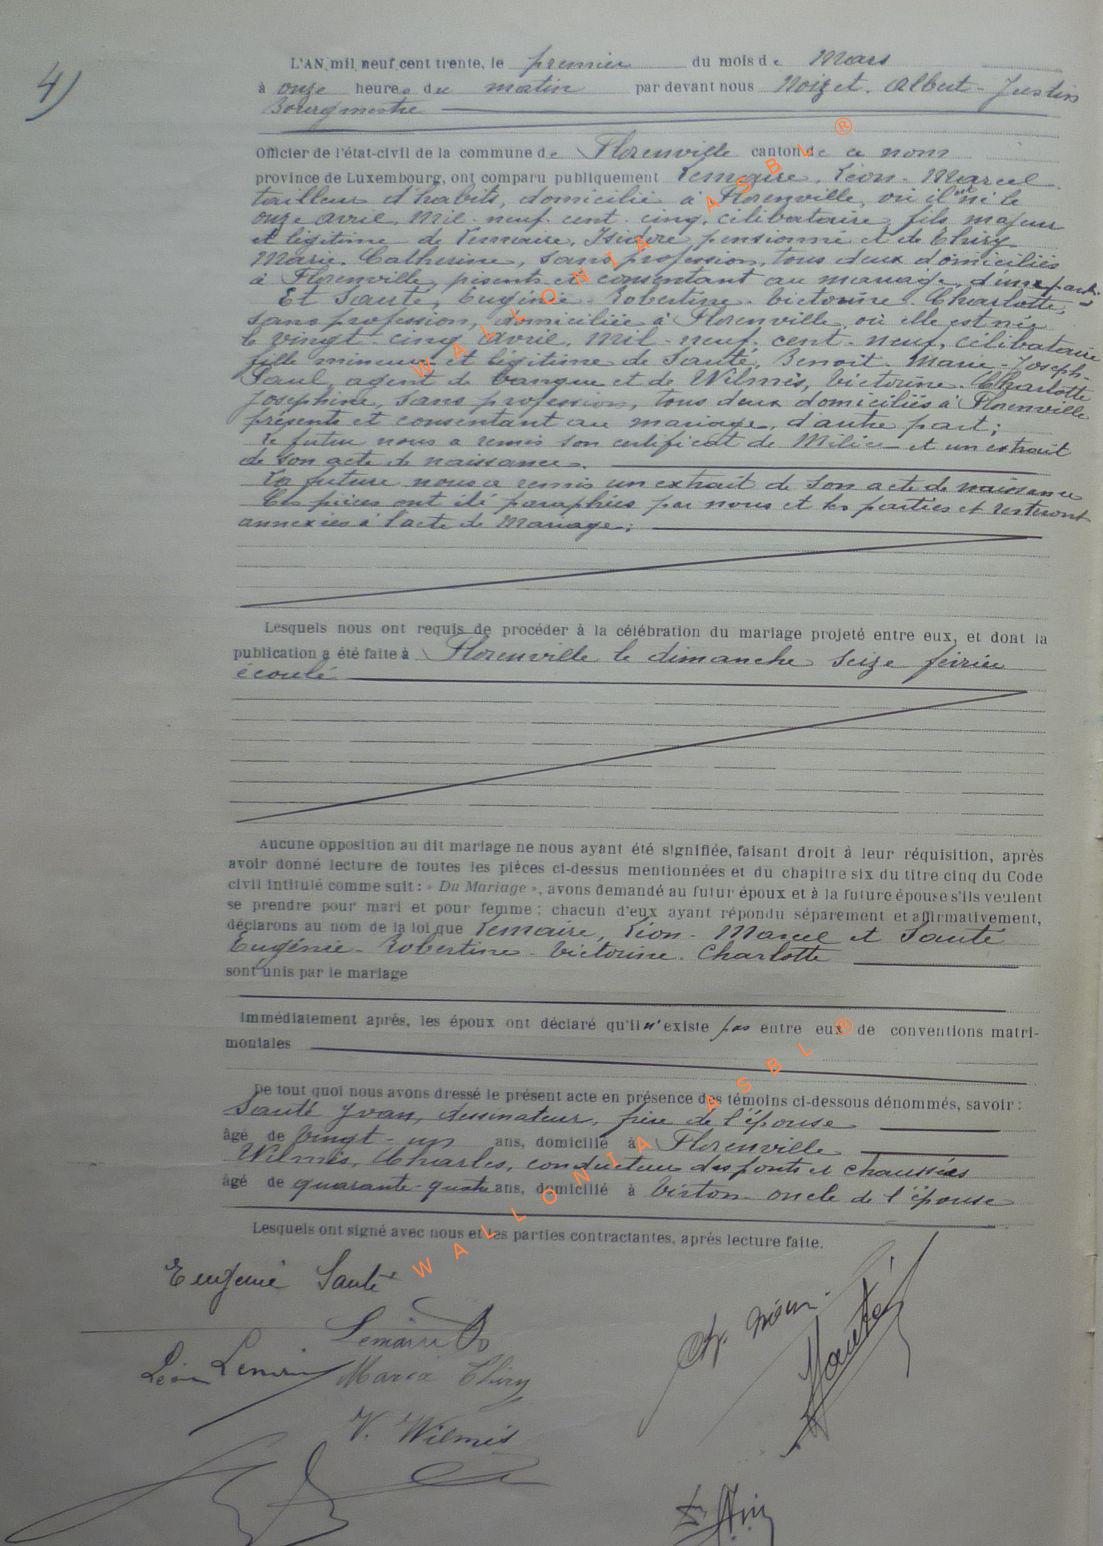 4)
L'AN mil neuf cent trente, le premier du mois de Mars
à onze heures du matin par devant nous Noizet, Albert-Justin
Bourgmestre
Officier de l'état-civil de la commune de Florenville canton de ce nom
province de Luxembourg, ont comparu publiquement Lemaire, Léon-Marcel
tailleur d'habits, domicilié à Florenville, où il est né le
onze avril, mil-neuf cent cinq, célibataire, fils majeur
et légitime de Lemaire, Isidore, pensionné et de Thiry
Marie-Catherine, sans profession, tous deux domiciliés
à Florenville, présents et consentant au mariage, d'une part;
Et Sauté, Eugénie-Robertine-Victorine-Charlotte,
sans profession, domiciliée à Florenville où elle est née
le vingt-cinq avril, mil-neuf-cent-neuf, célibataire
fille mineure et légitime de Sauté, Benoit-Marie-Joseph-
Paul, agent de banque et de Wilmès, Victorine-Charlotte
Joséphine, sans profession, tous deux domiciliés à Florenville
présents et consentant au mariage, d'autre part;
Le futur nous a remis son certificat de Milice et un extrait
de son acte de naissance.
La future nous a remis un extrait de son acte de naissance
Ces pièces ont été paraphées par nous et les parties et resteront
annexées à l'acte de Mariage;
Lesquels nous ont requis de procéder à la célébration du mariage projeté entre eux, et dont la
publication a été faite à Florenville le dimanche seize février
écoulé
Aucune opposition au dit mariage ne nous ayant été signifiée, faisant droit à leur réquisition, après
avoir donné lecture de toutes les pièces ci-dessus mentionnées et du chapitre six du titre cinq du Code
civil intitulé comme suit : « Du Mariage », avons demandé au futur époux et à la future épouse s'ils veulent
se prendre pour mari et pour femme ; chacun d'eux ayant répondu séparement et affirmativement,
déclarons au nom de la loi que Lemaire, Léon-Marcel et Sauté
Eugénie-Robertine-Victorine-Charlotte
sont unis par le mariage
Immédiatement après, les époux ont déclaré qu'il n'existe pas entre eux de conventions matri-
moniales
De tout quoi nous avons dressé le présent acte en présence des témoins ci-dessous dénommés, savoir :
Sauté Yvan, dessinateur, frère de l'épouse
âgé de vingt-un ans, domicilié à Florenville
Wilmès, Charles, conducteur des ponts et chaussées
âgé de quarante-quatre ans, domicilié à Virton oncle de l'épouse
Lesquels ont signé avec nous et les parties contractantes, après lecture faite.
Eugénie Sauté
Lemaire
Léon Lemaire
Maria Thiry
Sauté
V. Wilmès
WALLONIA ASBL ®
WALLONIA ASBL ®